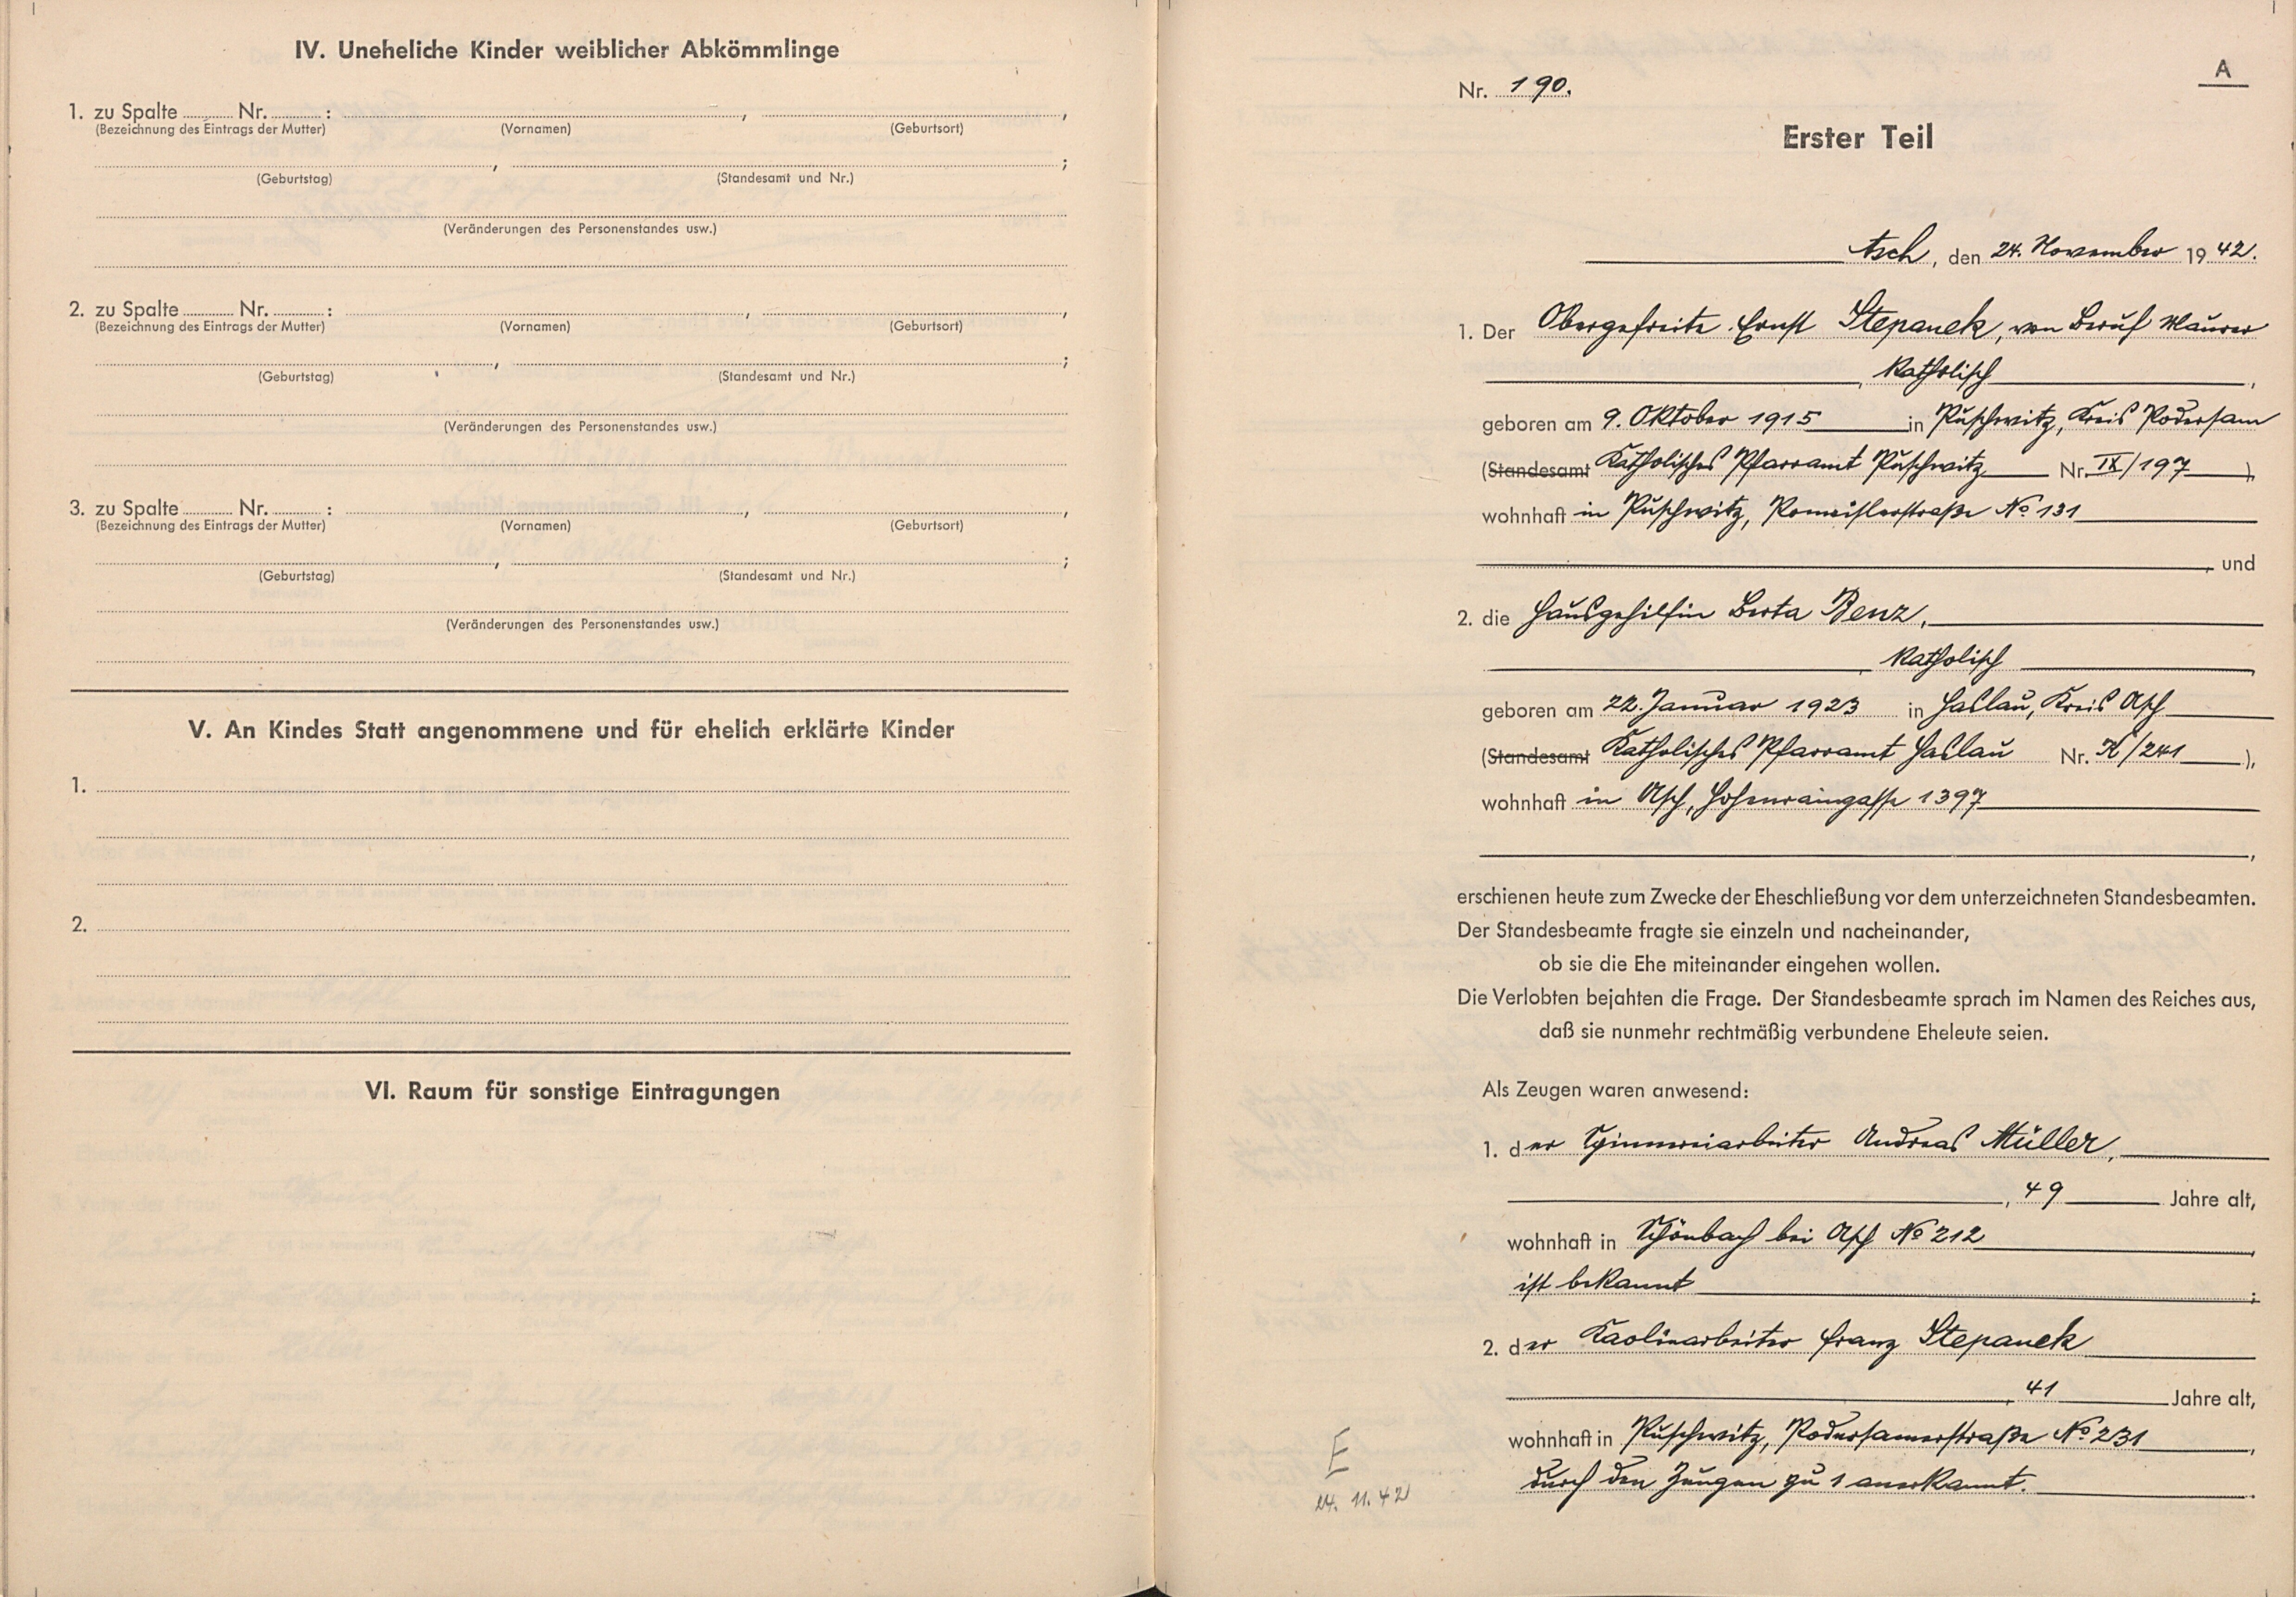 IV. Uneheliche Kinder weiblicher Abkömmlinge
1. zu Spalte ........ Nr. ........ :
(Bezeichnung des Eintrags der Mutter) (Vornamen) (Geburtsort)
(Geburtstag) (Standesamt und Nr.)
(Veränderungen des Personenstandes usw.)
2. zu Spalte ........ Nr. ........ :
(Bezeichnung des Eintrags der Mutter) (Vornamen) (Geburtsort)
(Geburtstag) (Standesamt und Nr.)
(Veränderungen des Personenstandes usw.)
3. zu Spalte ........ Nr. ........ :
(Bezeichnung des Eintrags der Mutter) (Vornamen) (Geburtsort)
(Geburtstag) (Standesamt und Nr.)
(Veränderungen des Personenstandes usw.)
V. An Kindes Statt angenommene und für ehelich erklärte Kinder
1.
2.
VI. Raum für sonstige Eintragungen
A
Nr. 190.
Erster Teil
Asch, den 24. November 1942.
1. Der Obergefreite Ernst Stepanek, von Beruf Maurer
, katholisch ,
geboren am 9. Oktober 1915 in Puschwitz, Kreis Podersam
(Standesamt Katholisches Pfarramt Puschwitz Nr. IX/197 ),
wohnhaft in Puschwitz, No 131
, und
2. die Hausgehilfin Berta Renz,
, katholisch ,
geboren am 22. Januar 1923 in Haslau, Kreis Asch
(Standesamt Katholisches Pfarramt Haslau Nr. X/241 ),
wohnhaft in Asch, Hohenraingasse 1397
,
erschienen heute zum Zwecke der Eheschließung vor dem unterzeichneten Standesbeamten.
Der Standesbeamte fragte sie einzeln und nacheinander,
ob sie die Ehe miteinander eingehen wollen.
Die Verlobten bejahten die Frage. Der Standesbeamte sprach im Namen des Reiches aus,
daß sie nunmehr rechtmäßig verbundene Eheleute seien.
Als Zeugen waren anwesend:
1. der Spinnereiarbeiter Andreas Müller,
, 49 Jahre alt,
wohnhaft in Schönbach bei Asch No 212 ,
ist bekannt ;
2. der Kaolinarbeiter Franz Stepanek
, 41 Jahre alt,
wohnhaft in Puschwitz, Podersamerstraße No 231 ,
durch den Zeugen zu 1 anerkannt.
E
24. 11. 42